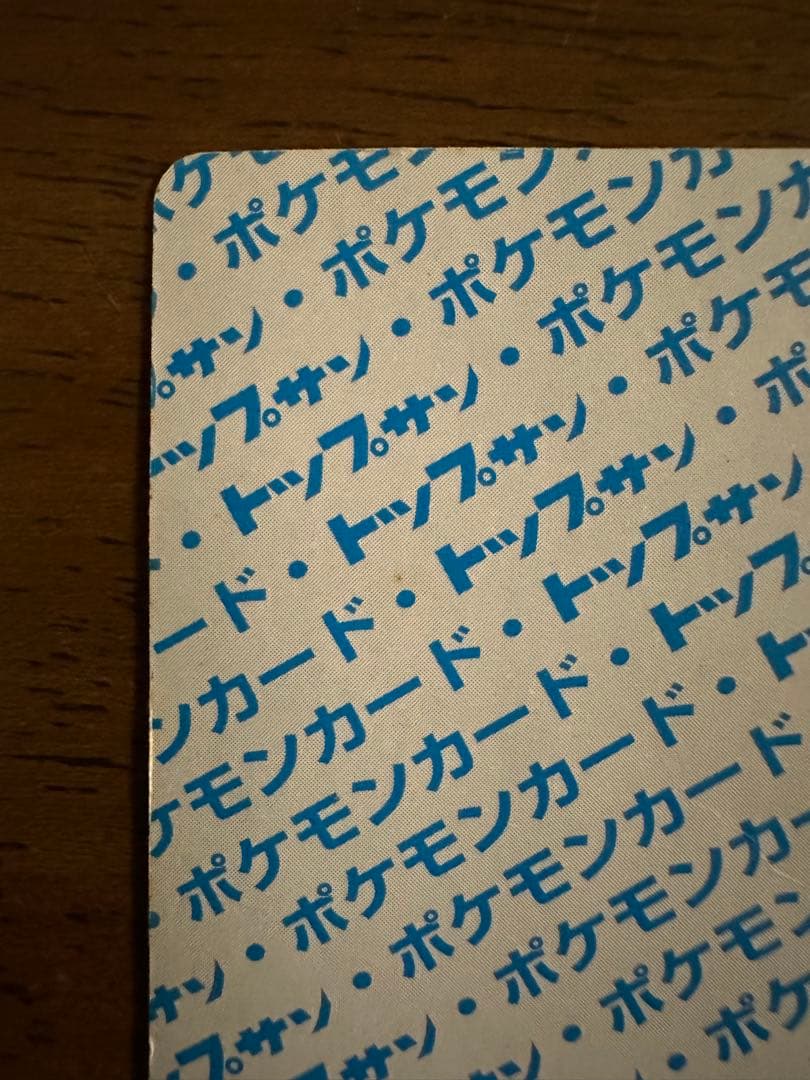 ケモ
・ポケモ
プサン・ポケモン
ップサン・ポケモンカ
・トップサン・ポケモンカ
ード・トップサン・ポケモ
ンカード・トップサン・ポ
ケモンカード・トップサン
・ポケモンカード・トップ
サン・ポケモンカード・ト
プサン・ポケモンカード
サン・ポケモンカー
ン・ポケモン
・ポケ